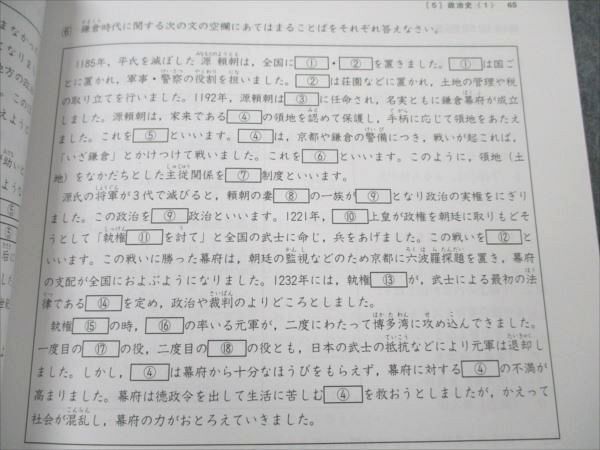 [5] 政治史(1) 65
⑥ 鎌倉時代に関する次の文の空欄にあてはまることばをそれぞれ答えなさい。
1185年，平氏を滅ぼした源頼朝は，全国に①・②を置きました。①は国ご
とに置かれ，軍事・警察の役割を担いました。②は荘園などに置かれ，土地の管理や税
の取り立てを行いました。1192年，源頼朝は③に任命され，名実ともに鎌倉幕府が成立
しました。源頼朝は，家来である④の領地を認めて保護し，手柄に応じて領地をあたえ
ました。これを⑤といいます。④は，京都や鎌倉の警備につき，戦いが起これば，
「いざ鎌倉」とかけつけて戦いました。これを⑥といいます。このように，領地（土
地）をなかだちとした主従関係を⑦制度といいます。
源氏の将軍が3代で滅びると，頼朝の妻⑧の一族が⑨となり政治の実権をにぎり
ました。この政治を⑨政治といいます。1221年，⑩上皇が政権を朝廷に取りもどそ
うとして「執権⑪を討て」と全国の武士に命じ，兵をあげました。この戦いを⑫と
いいます。この戦いに勝った幕府は，朝廷の監視などのため京都に六波羅探題を置き，幕府
の支配が全国におよぶようになりました。1232年には，執権⑬が，武士による最初の法
律である⑭を定め，政治や裁判のよりどころとしました。
執権⑮の時，⑯の率いる元軍が，二度にわたって博多湾に攻め込んできました。
一度目の⑰の役，二度目の⑱の役とも，日本の武士の抵抗などにより元軍は退却し
ました。しかし，④は幕府から十分なほうびをもらえず，幕府に対する④の不満が
高まりました。幕府は徳政令を出して生活に苦しむ④を救おうとしましたが，かえって
社会が混乱し，幕府の力がおとろえていきました。